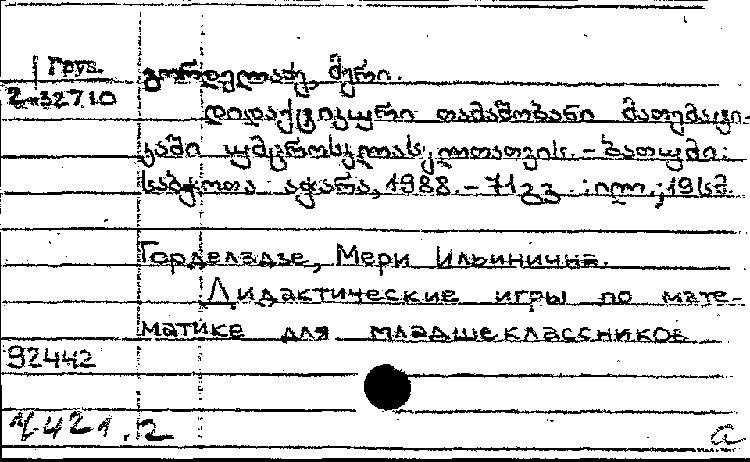 Груз. გორდელაძე, მერი.
2-32710
დიდაქტიკური თამაშობანი მათემატი-
კაში უმცროსკლასელთათვის. - ბათუმი:
საბჭოთა აჭარა, 1988. - 71 გვ. : ილ.; 19 სმ.
Горделадзе, Мери Ильинична.
Дидактические игры по мате-
матике для младшеклассников
92442
Ч.421.2 a